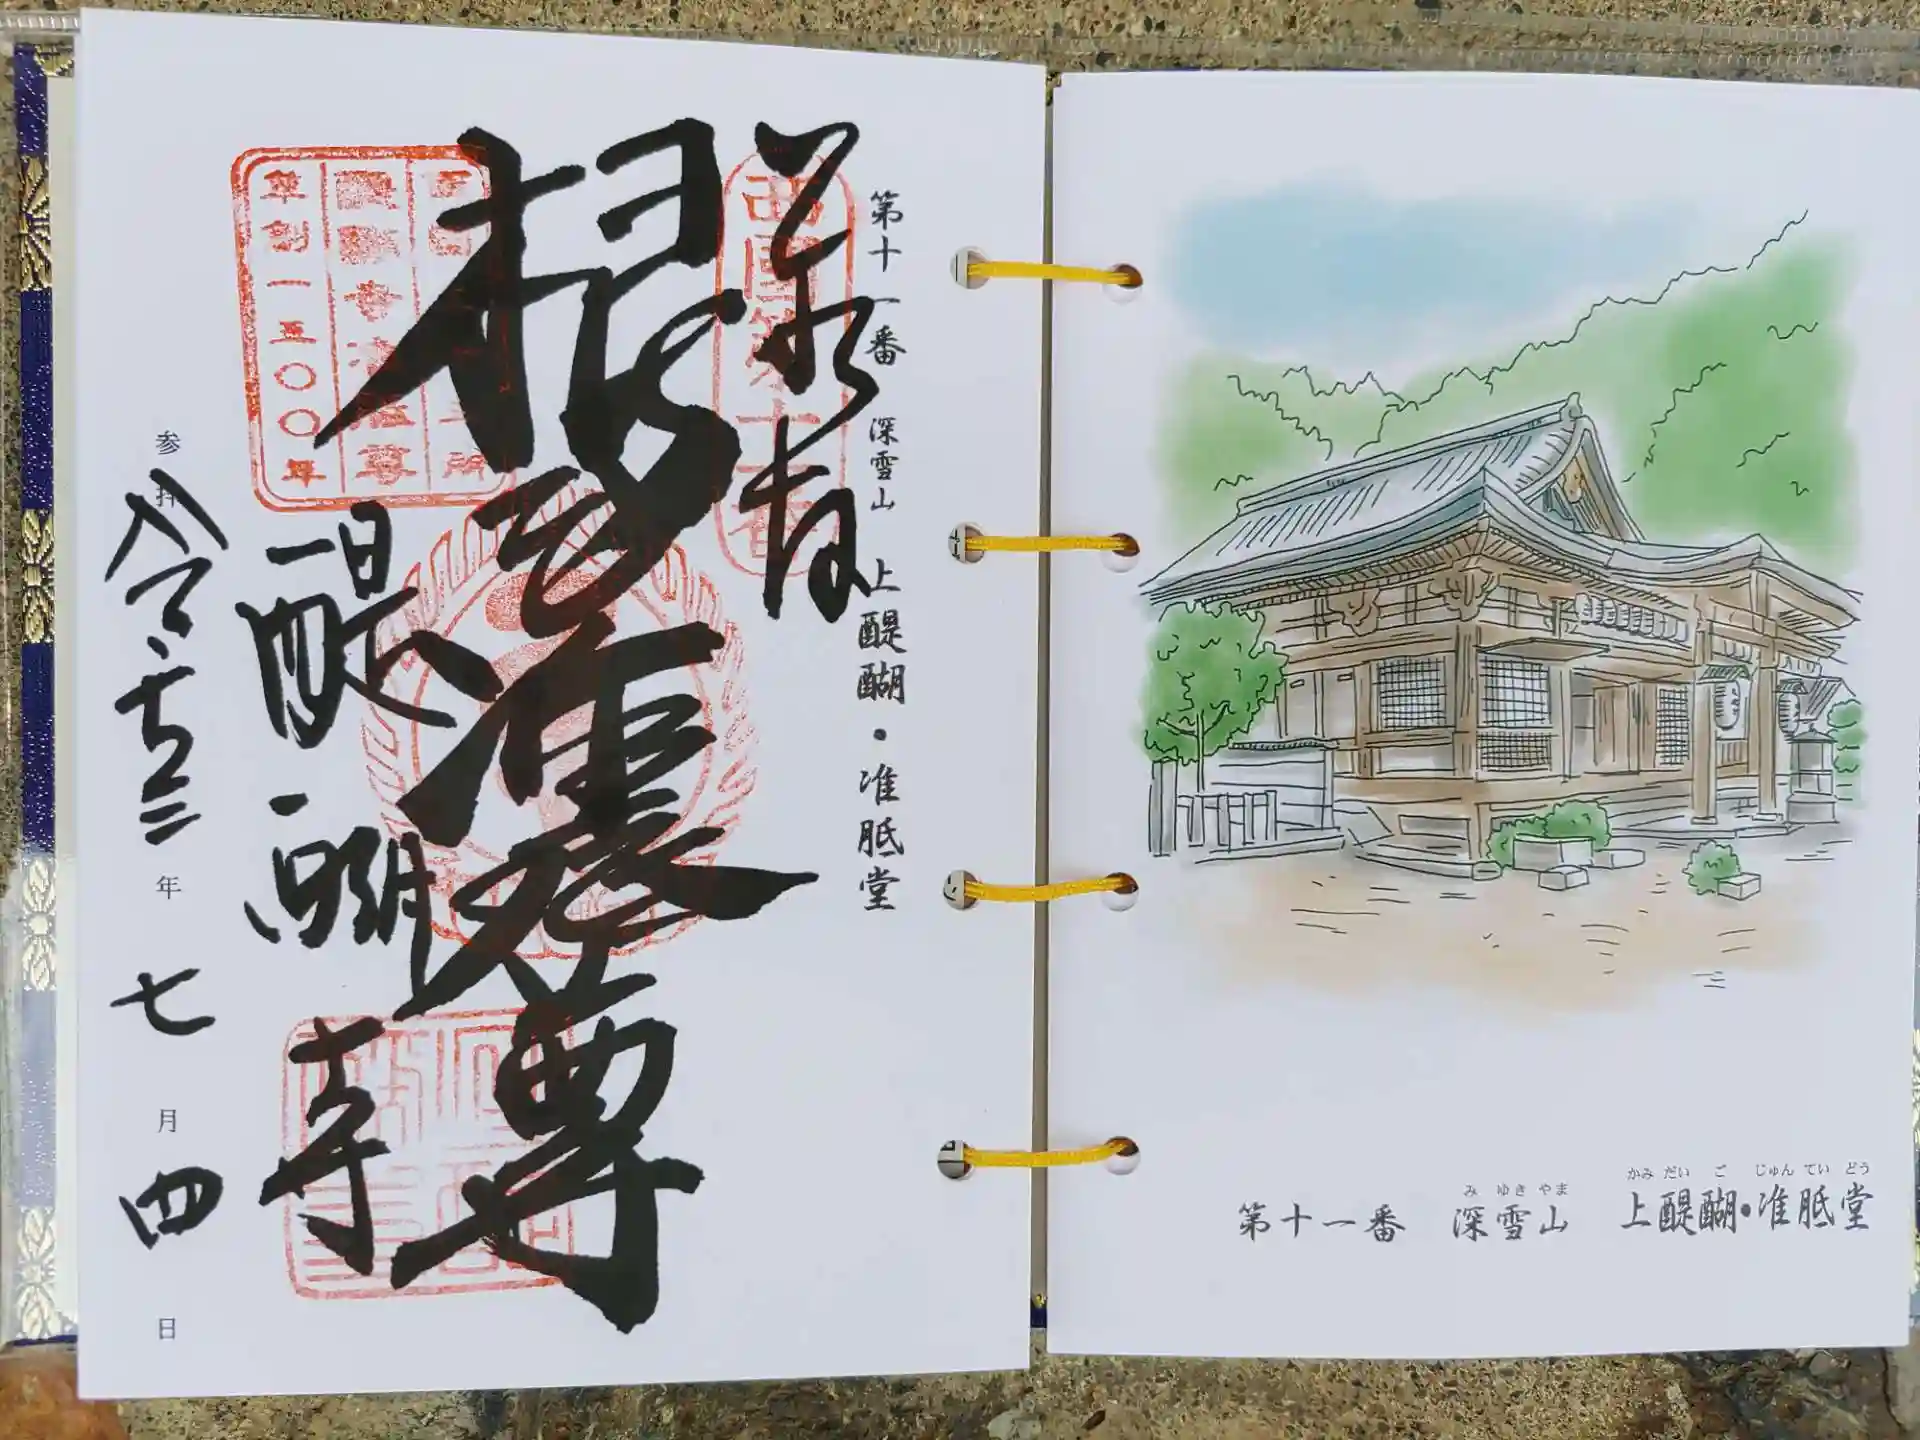 第十一番 深雪山 上醍醐・准胝堂
西國第十一番
根本准胝尊
醍醐寺
草創一三〇〇年
参拝 令和三年 七月四日
かみだいご じゅんていどう
みゆきやま
第十一番 深雪山 上醍醐・准胝堂